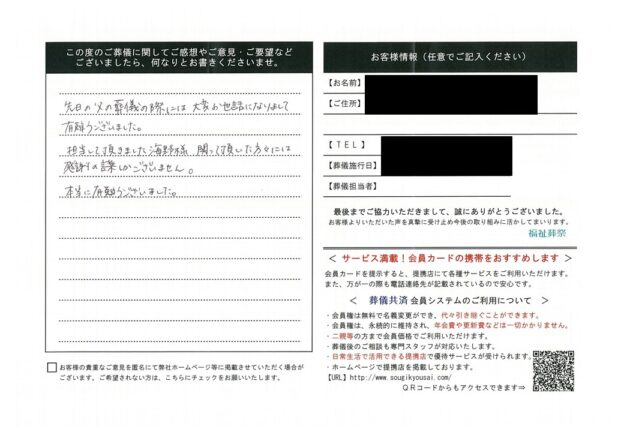 この度のご葬儀に関してご感想やご意見・ご要望など
ございましたら、何なりとお書きくださいませ。
先日の父の葬儀の際には大変お世話になりまして
有難うございました。
担当して頂きました海野様 関って頂いた方々には
感謝の言葉しかございません。
本当に有難うございました。
お客様の貴重なご意見を匿名にて弊社ホームページ等に掲載させていただく場合が
ございます。ご希望されない方は、こちらにチェックをお願いいたします。
お客様情報（任意でご記入ください）
【お名前】
【ご住所】
【ＴＥＬ】
【葬儀施行日】
【葬儀担当者】
最後までご協力いただきまして、誠にありがとうございました。
お客様よりいただいた声を真摯に受け止め今後の取り組みに活かしてまいります。
福祉葬祭
＜ サービス満載！会員カードの携帯をおすすめします ＞
会員カードを提示すると、提携店にて各種サービスをご利用いただけます。
また、万が一の際も電話連絡先が記載されているので安心です。
＜ 葬儀共済 会員システムのご利用について ＞
・会員権は無料で名義変更ができ、代々引き継ぐことができます。
・会員権は、永続的に維持され、年会費や更新費などは一切かかりません。
・二親等の方まで会員価格でご利用いただけます。
・葬儀後のご相談も専門スタッフが対応いたします。
・日常生活で活用できる提携店で優待サービスが受けられます。
・ホームページで提携店を掲載しております。
【URL】http://www.sougikyousai.com/
ＱＲコードからもアクセスできます⇒